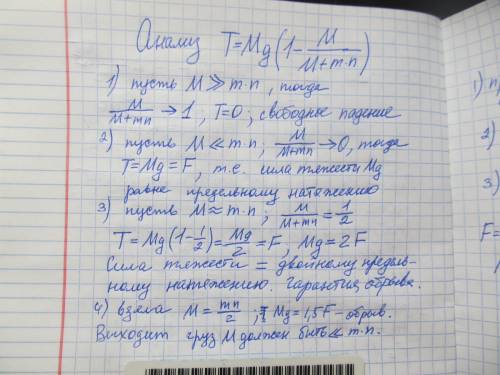 Анализ T=Mg(1-M/(M+m·n))
1) пусть M≫m·n, тогда
M/(M+mn)→1; T=0; свободное падение
2) пусть M≪m·n; M/(M+mn)→0, тогда
T=Mg=F, т.е. сила тяжести Mg
равна предельному натяжению
3) пусть M≈m·n; M/(M+mn)=1/2
T=Mg(1-1/2)=Mg/2=F, Mg=2F
Сила тяжести = двойному предель-
ному натяжению. Гарантия обрыва.
4) взяла M=mn/2; Mg=1,5F-обрыв.
Выходит груз M должен быть ≪ m·n.
1)
2)
3)
F=